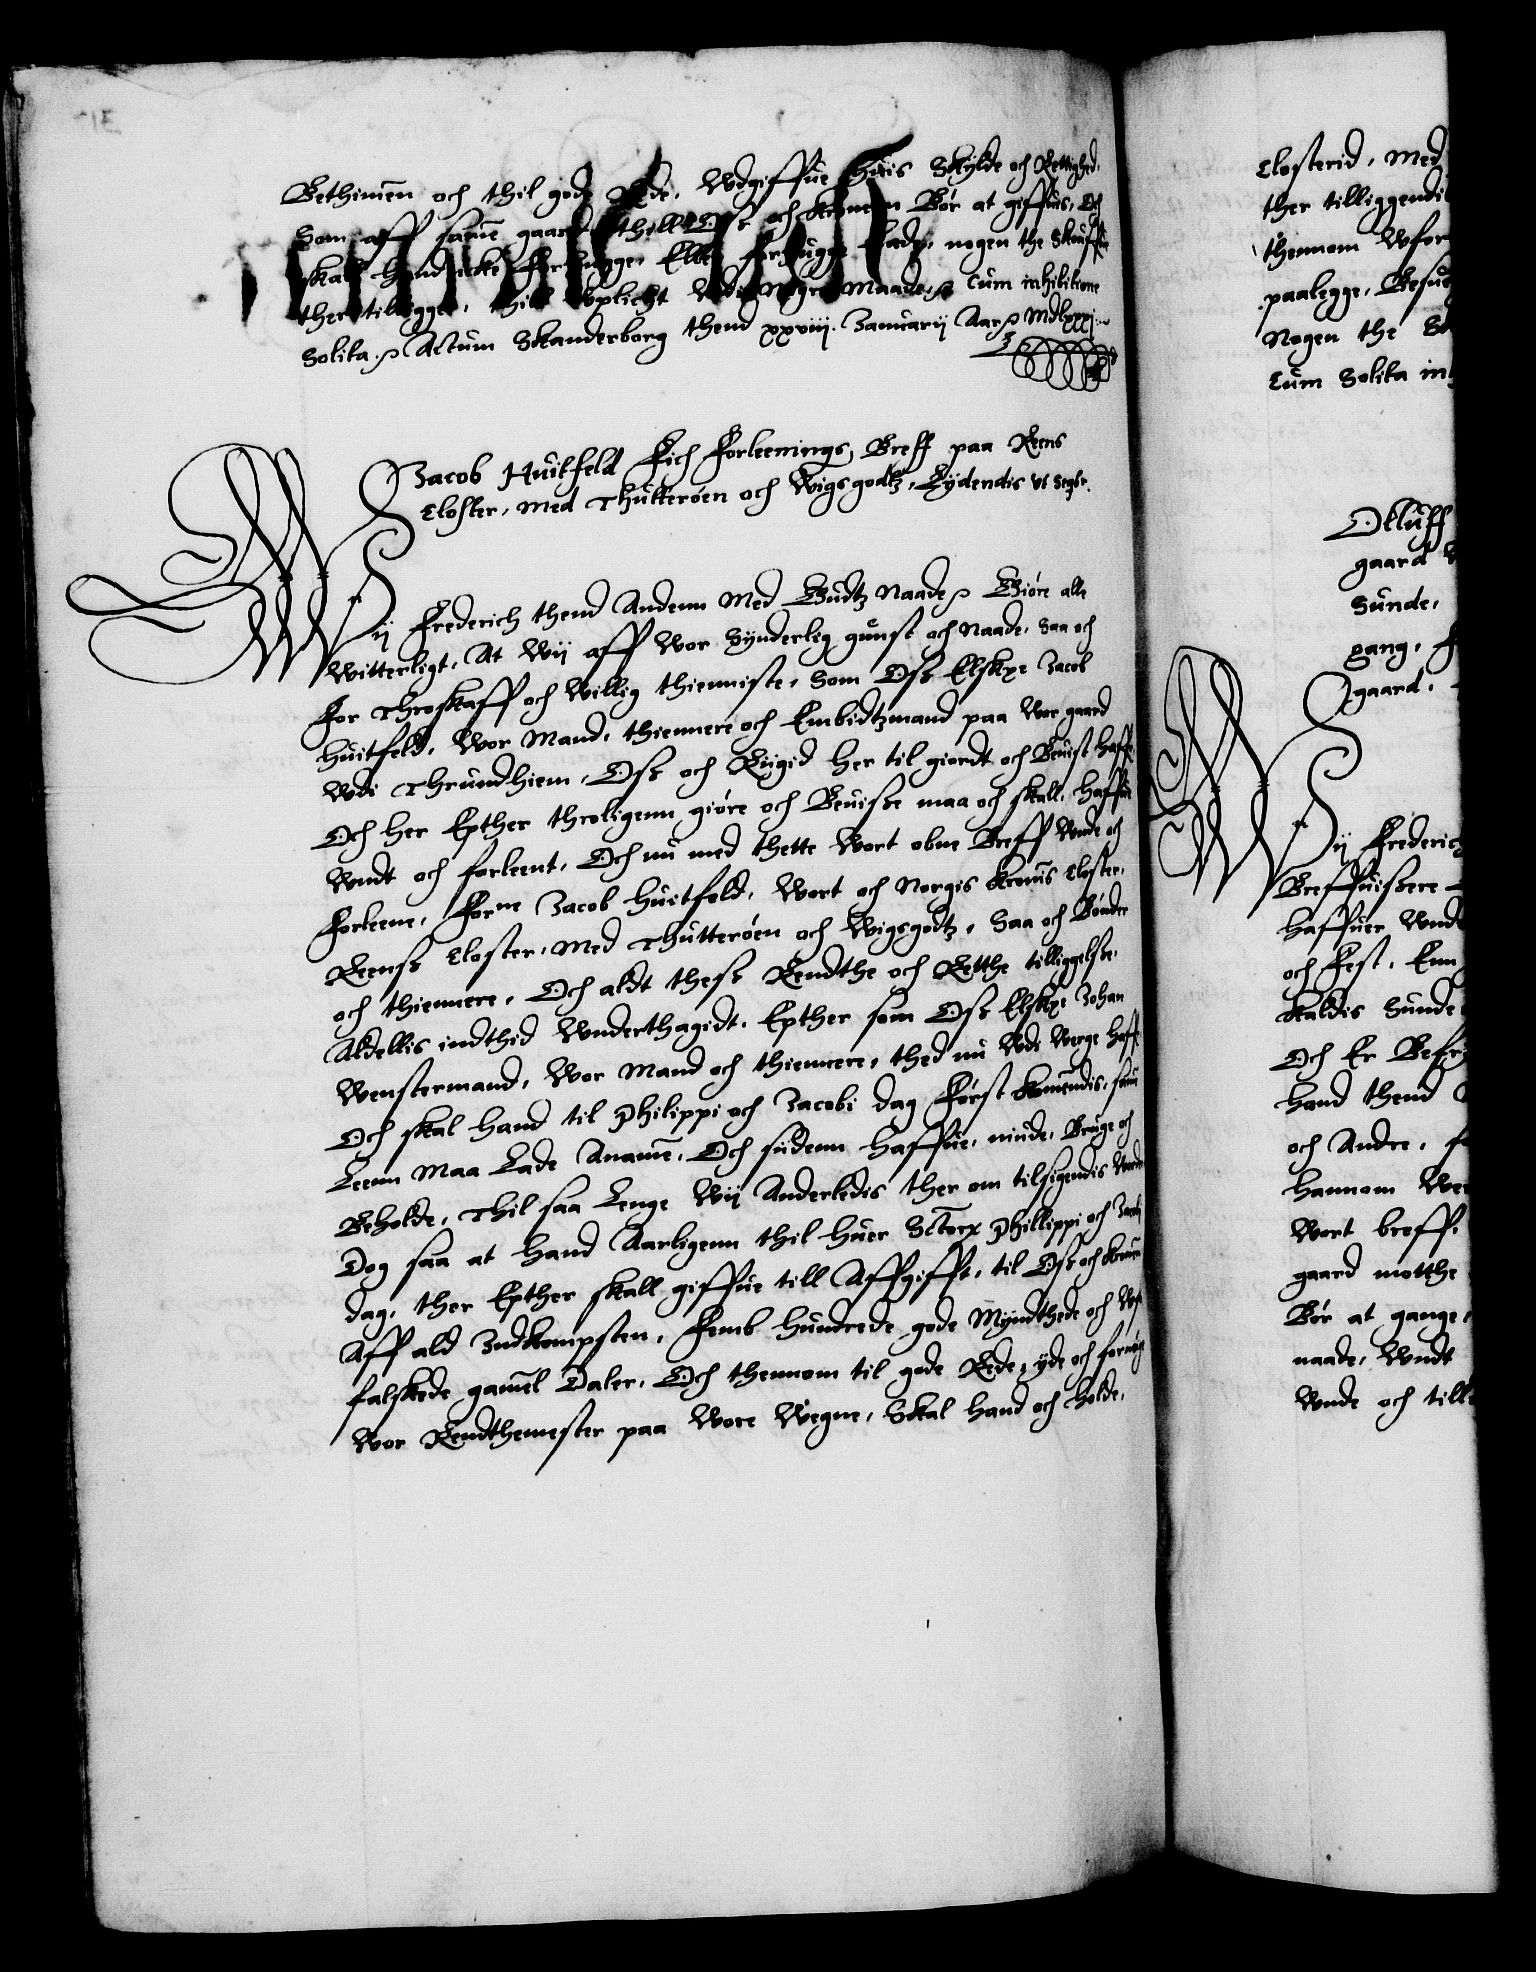 Bethimen och thil gode Rede, Wdgiffue huis Skylde och Rettighed,
Som aff same gaard thill Oss och Kronen Bør at giffues, Och
skall hand icke forhugge, Eller forhugge lade, nogen the Skouffue
ther tilligger, thill Wplicht Wdi Nogre Maade, Cum inhibitione
Solita. Actum Skanderborg thend xxviij. Januarij Aar MDlxxxj
Jacob Huitfeld Fich Forleenings Breff paa Reens
Closter, Med Thutterøen och Wigsgodtz, Lydendis Vt Seqtr.
Wij Frederich thend Andenn Med Gudtz Naade Giøre alle
Witterligt, At Wij aff Wor Synderlig gunst och Naade, Saa och
For Throskaff och Willig thienniste, Som Oss Elskxe Jacob
Huitfeld, Wor Mand, thiennere och Embidtzmand paa Wor gaard
Wdi Thrundhiem, Oss och Rigid her til giordt och Beuist haffr
Och her Epther throligenn giøre och Beuisse maa och skall, haffue
Wndt och forleent, Och nu med thette Wort obne Breff Wnde och
Forleene, Forne Jacob Huitfeld, Wort och Norgis Kronis Closter,
Reenss Closter, Med Thutterøen och Wigsgodtz, Saa och Bønder
och thiennere, Och aldt thess Rendthe och Retthe tilliggelsse,
Aldellis indthid Wnderthagidt, Epther som Oss Elskxe Johan
Wenstermand, Wor Mand och thiennere, thed nu Wdi Werge haffr
Och skal hand til Philippi och Jacobi dag Først komendis, sam
Leenn Maa Lade Aname, Och sidenn haffue, niude, Bruge och
Beholde, Thil saa Lenge Wij Anderledis ther om tilsigendis Worde
Dog saa at hand Aarligenn thil huer Sctorx Phillippi och Jacobi
dag, ther Epther skall giffue till Affgifft, til Oss och Kronen
Aff ald Indkompsten, Femb hundrede gode Myndthede och Wf
falskede gamel Daler, Och thennom til gode Rede, yde och fornøge
Wor Rendthemester paa Wore Wegne, Skal hand och holde,
Closterid, Med
ther tilliggendi
thennom Wfor
paalegge, Besue
Nogen the Sk
Cum Solita in
Olluff
gaard
Sunde,
gang,
gaard,
Wij Frederich
Breffuissere
haffuer Wndt
och Fest, Enn
kaldis Sunde
Och Er Befri
hand thend
och Andre, s
hannom Wer
Wort breffe
gaard motthe
Bør at gange,
naade, Wndt
Wnde och till